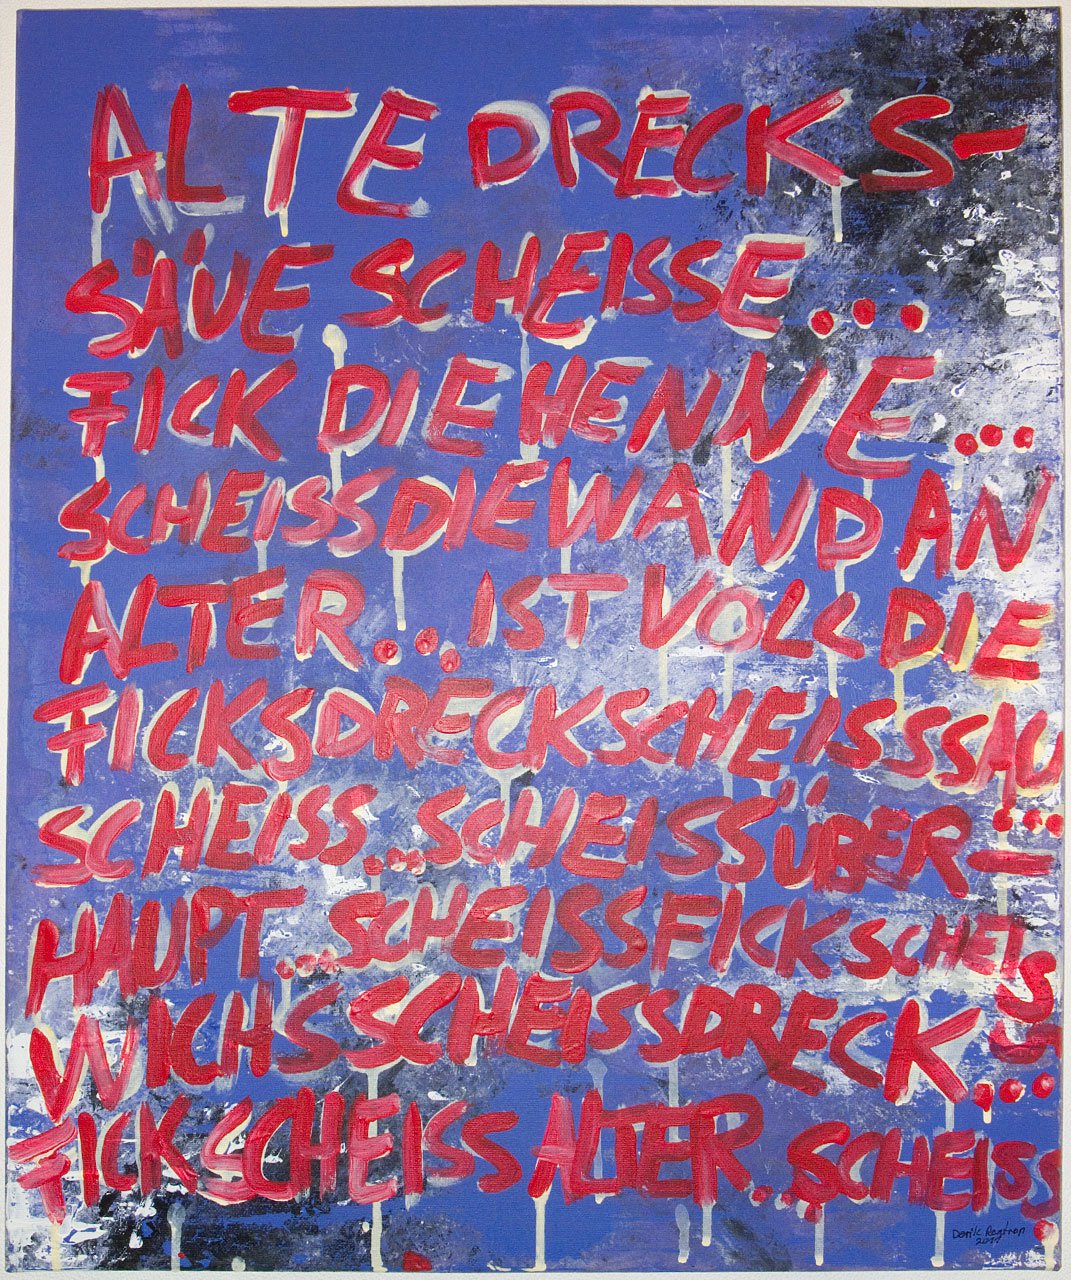 ALTE DRECKS-
SÄUE SCHEISSE...
FICK DIE HENNE...
SCHEISS DIE WAND AN
ALTER... IST VOLL DIE
FICKSDRECKSCHEISSSAU...
SCHEISS... SCHEISS ÜBER-
HAUPT... SCHEISSFICKSCHEISS
WICHSSCHEISSDRECK...
FICKSCHEISS ALTER.. SCHEISS
2017